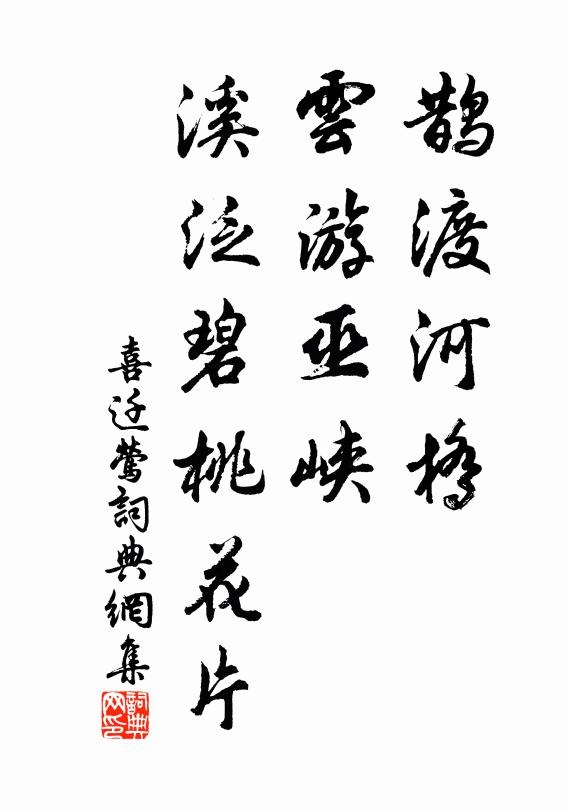 鵲渡河橋
雲游巫峽
溪泛碧桃花片
喜迁鶯詞典網集
詞典网印